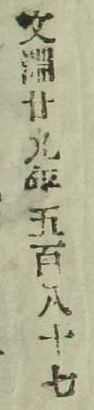 文淵廿九年五百八十七